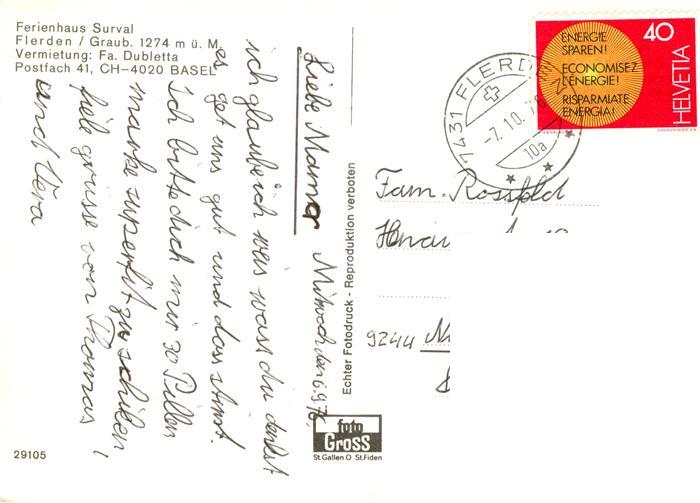 Ferienhaus Surval
Flerden / Graub. 1274 m ü. M.
Vermietung: Fa. Dubletta
Postfach 41, CH-4020 BASEL
Liebe Mamar Mitwoch den 6.9.76,
ich glaube ich weis wass du denkst
es get uns gut und dass stimt.
Ich bitte dich mir 30 Pillen
marke superfit zu schiken
fiele grüsse von Thomas
und Vera
29105
Echter Fotodruck - Reproduktion verboten
foto
Gross
St.Gallen O St.Fiden
7431 FLERDEN
-7.10.76
10a
ENERGIE
SPAREN!
ECONOMISEZ
L'ENERGIE!
RISPARMIATE
ENERGIA!
40
HELVETIA
Fam. Rossfeld
9244